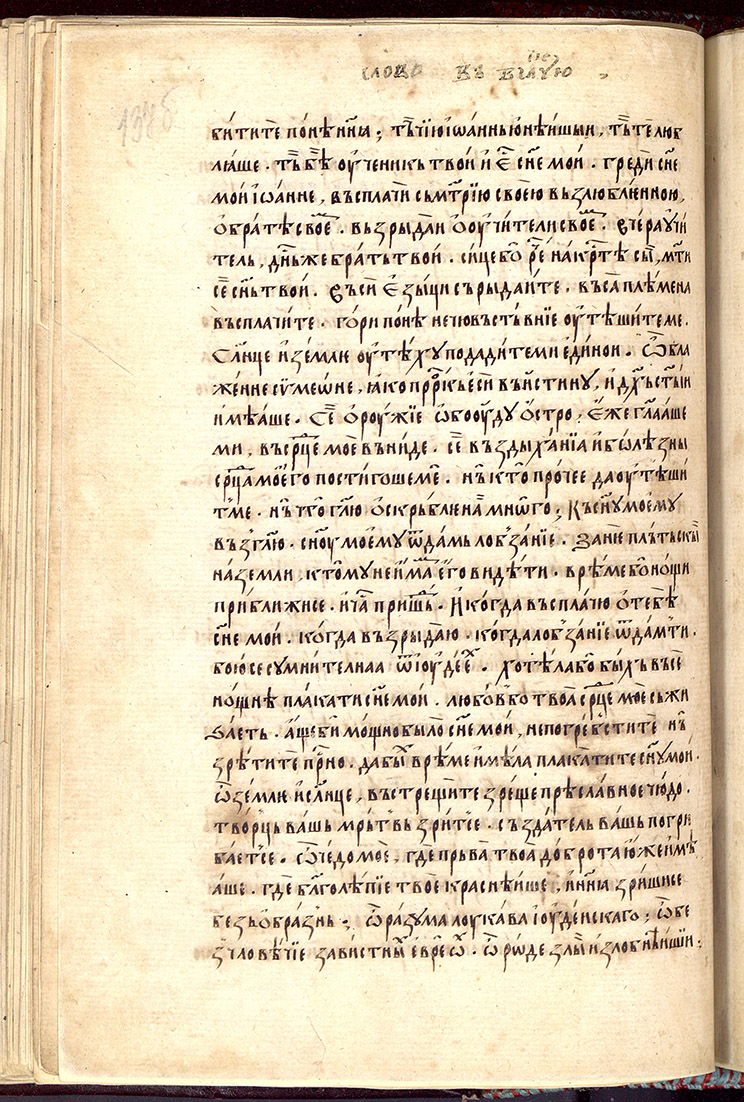 слово въ вел҇кую
137б
битите понѣ нн҃ꙗ ; тъ́чїю іѡ́аннь ю́нѣишыи , тъ́ те лю́б
лꙗше . тъ́ бѣ̀ ѹ҆ченикь твои и҆ є҆҃ сн҃е мои . греди сн҃е
мои іѡ́анне , въсплачи сь мт҃рїю своею вьзлюблїенною ,
ѡ҆ братѣ своем҇ . вьзрыдаи ѡ҆ ѹ҆чители своем҇ . вчера ѹ҆чи
тель , дн҃ь же брать твои . сице бо̀ рече на крт҇ѣ сы̀ , мт҃и
сѐ сн҃ь твои . въси є҆зыци сърыдаите . въса пле́мена
въсплачите . гори понѣ нечювъствнїе ѹ҆тѣшите ме .
Сл҃нце и҆ землю ѹ҆тѣхѹ подадите ми единои . Ѽ бла
жение сѵмеѡне , ꙗко пррⷪ҇кь еси въ истинѹ , и҆ дх҃ь ст҃ыи
имѣаше . Сѐ ѡ҆рѹжїе ѡбоюдѹ ѡ҆стро , є҆же гл҃ааше
ми , въ ср҃це мое вь ниде . сѐ въздыханїа и҆ болѣзны
ср҃ца моего постигоше ме . нъ̀ кто̀ прочее да ѹ҆тѣши
т ме . нъ̀ что̀ гл҃ю ѡ҆скрьблена̀ мнѡго ; Къ сн҃ѹ моемѹ
възгл҃ю . сн҃ѹ моемѹ ѿдамь лобзанїе . Зане плътьскы
на земли , ктомѹ не има̀м его видѣти . врѣме бо̀ нощи
приближисе . и҆ ча҇ пришьд . И когда въсплачю ѡ҆ тебѣ
сн҃е мои . когда възрыдаю . когда лобзанїе ѿдам ти .
бою се сѹмнителнаа ѿ іѹдеех . хотѣла бо̀ быхь въсе
нощнѣ плакати сн҃е мои . любовь бо твоа ср҃це мое сьжи
ваеть . аще би мощно было сн҃е мои , не погребьстите нъ̀
зрѣтите прн҇о . да бых врѣме имѣла плакатите сн҃ѹ мои .
Ѽ земле и҆ сл҃нце , въстрещите зреще прѣславное чюдо .
творць вашь мрьтвь зритсе . създатель вашь погрѣ
баетсе . Ѽ чедо мое , где прьва̀ твоа доброта юже имѣ
аше . где бл҃голѣпїе твое краснѣише , и нн҃ꙗ зриши се
безьѡбразнь ; Ѽ разѹма лѹкава іѹдеискаго ; Ѽ бе
зчловѣчїе завистных евреѡв . Ѽ рѡде злы и злобнѣишїи ;